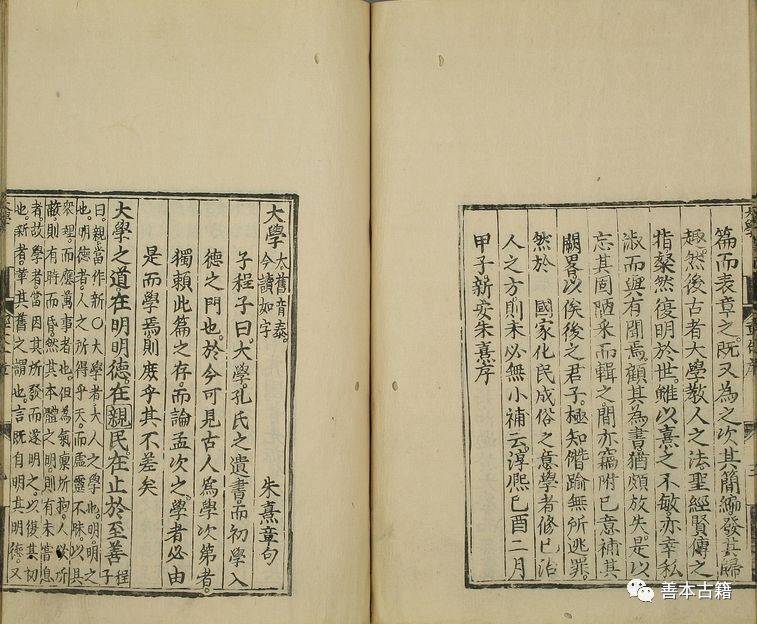 篇而表章之。既又為之次其簡編發其歸
趣。然後古者大學教人之法聖經賢傳之
指粲然復明於世。雖以熹之不敏亦幸私
淑而與有聞焉。顧其為書猶頗放失。是以
忘其固陋采而輯之。間亦竊附己意補其
闕畧以俟後之君子。極知僭踰無所逃罪。
然於 國家化民成俗之意學者修己治
人之方則未必無小補云。淳熙己酉二月
甲子新安朱熹序
大學 大舊音泰。今讀如字 朱熹章句
子程子曰。大學。孔氏之遺書。而初學入
德之門也。於今可見古人為學次第者。
獨賴此篇之存。而論孟次之。學者必由
是而學焉則庶乎其不差矣
大學之道在明明德。在親民。在止於至善 程子
曰。親當作新○大學者大人之學也。明。明之
也。明德者人之所得乎天。而虛靈不昧。以具
衆理。而應萬事者也。但為氣禀所拘。人欲所
蔽。則有時而昏。然其本體之明。則有未嘗息
者。故學者當因其所發而遂明之。以復其初
也。新者。革其舊之謂也。言既自明其明德。又
善本古籍